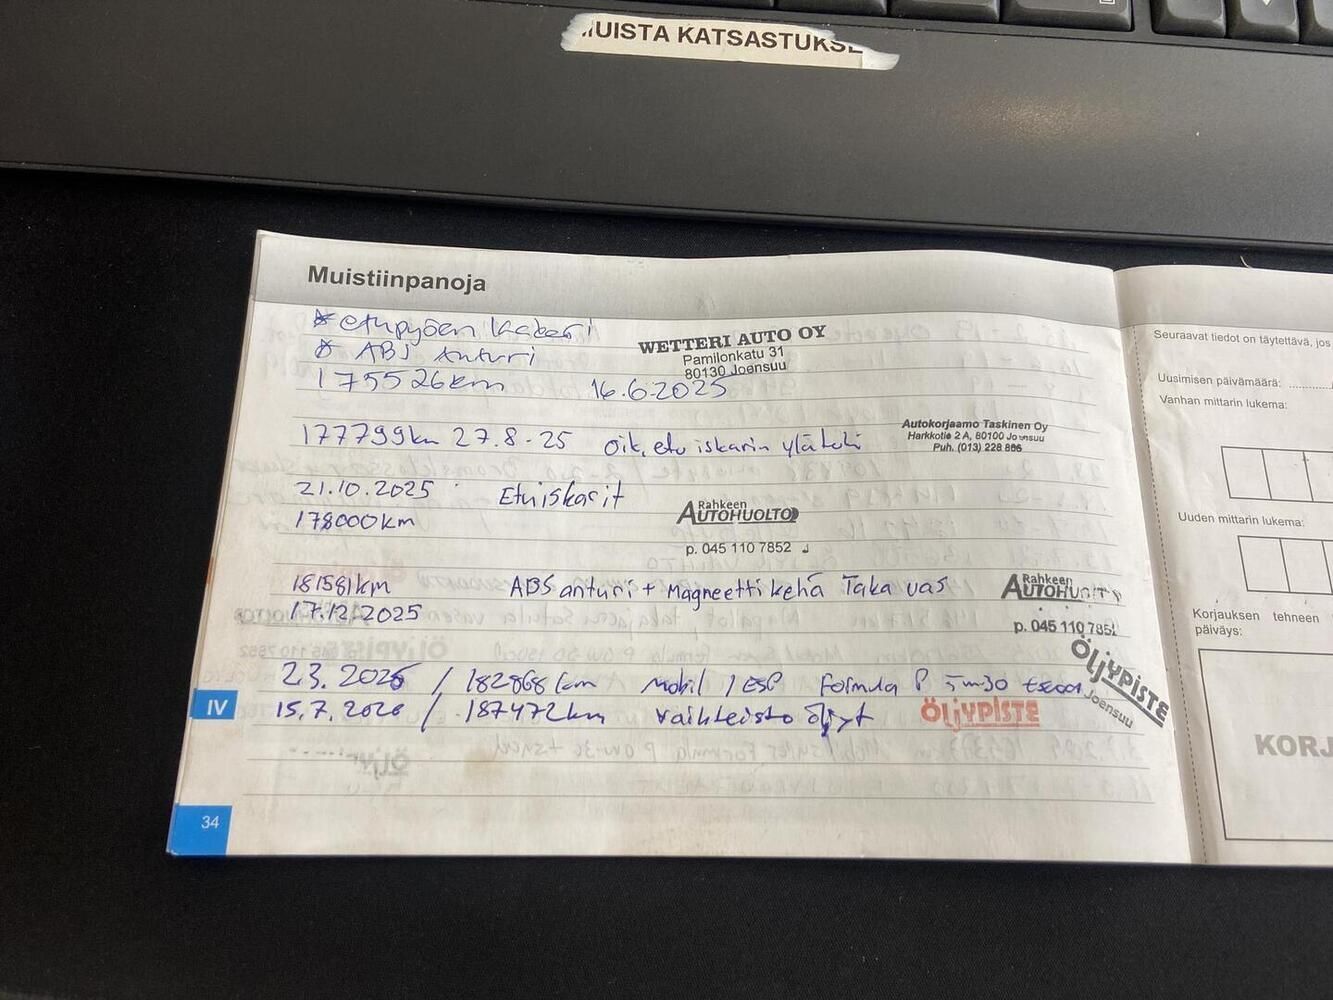 MUISTA KATSASTUKSE
Muistiinpanoja
* etupyöen laakeri
* ABS Anturi
175526km 16.6.2025
WETTERI AUTO OY
Pamilonkatu 31
80130 Joensuu
177799km 27.8-25 oik. etu iskarin ylätuki
Autokorjaamo Taskinen Oy
Harkkotie 2 A, 80100 Joensuu
Puh. (013) 228 886
21.10.2025 Etuiskarit
178000km
Rahkeen
AUTOHUOLTO
p. 045 110 7852
181581km ABS anturi + Magneettikehä Taka vas
17.12.2025
Rahkeen
AUTOHUOLTO
p. 045 110 7852
2.3.2026 / 182868km Mobil 1 ESP Formula P 5w30 +suod
ÖLJYPISTE
Joensuu
15.7.2026 / 187472km vaihteisto öljyt
ÖLJYPISTE
IV
34
Seuraavat tiedot on täytettävä, jos
Uusimisen päivämäärä:
Vanhan mittarin lukema:
Uuden mittarin lukema:
Korjauksen tehneen
päiväys:
KORJ